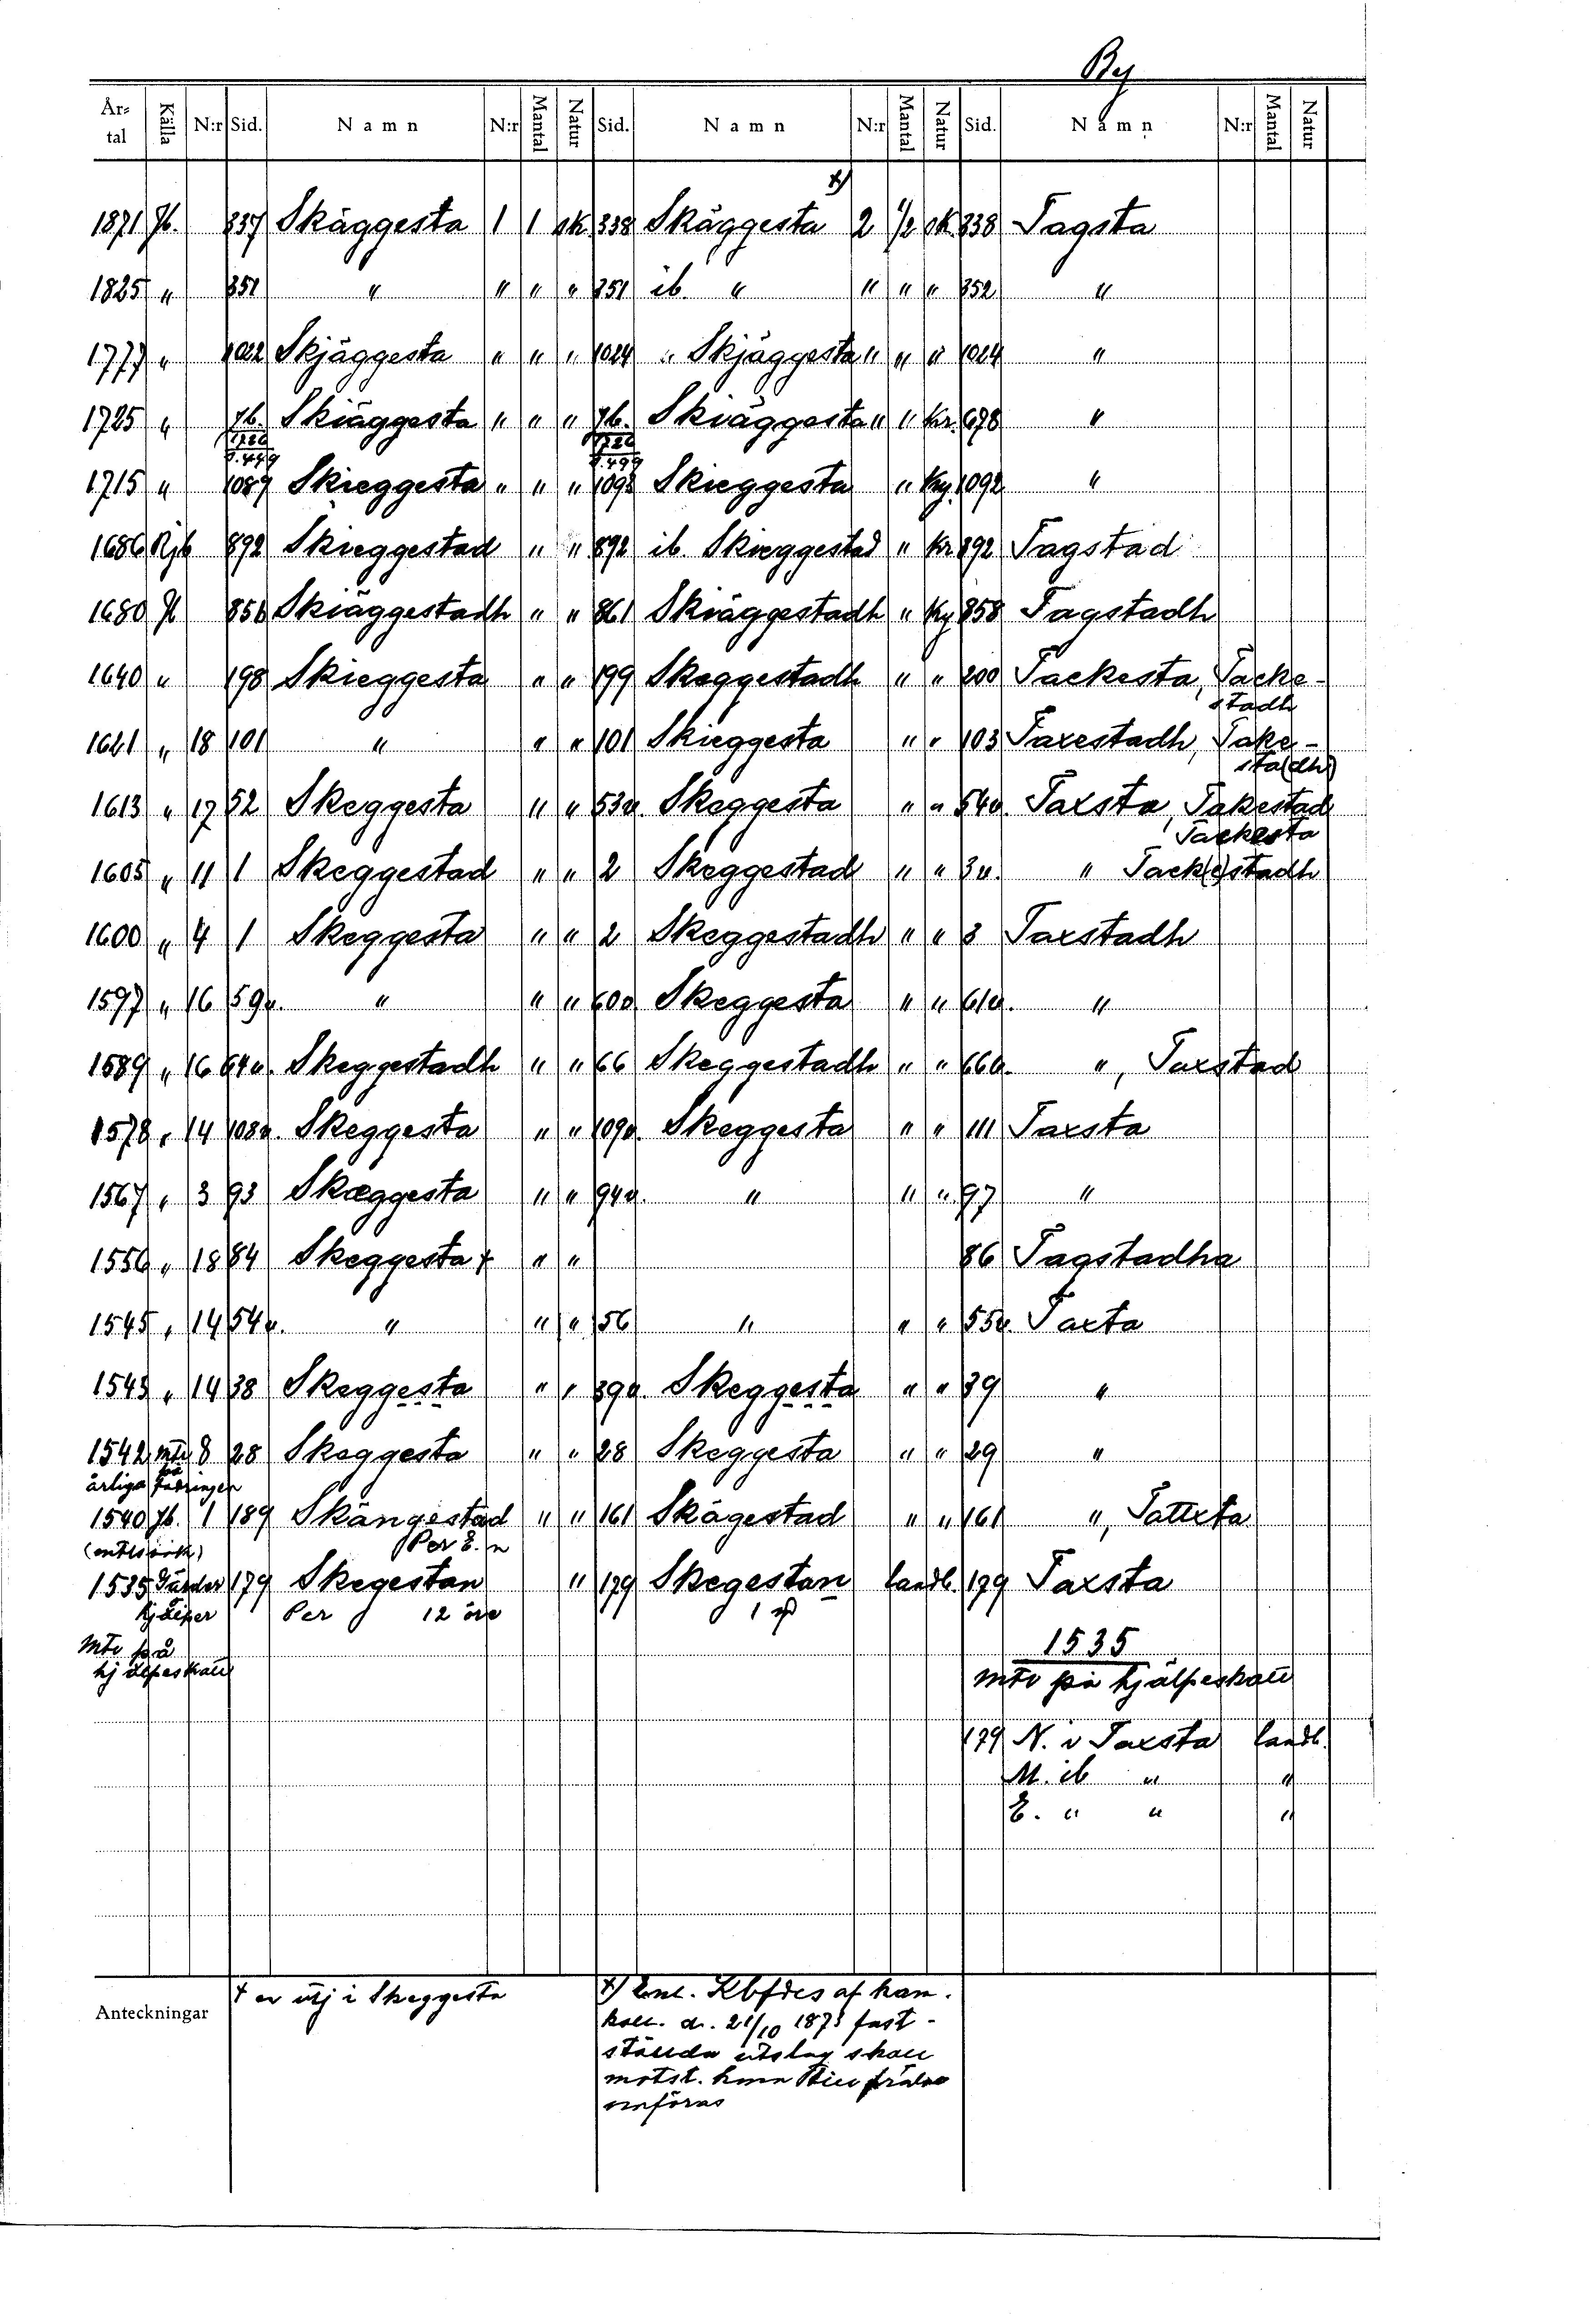 By
År-tal Källa N:r Sid. Namn N:r Mantal Natur Sid. Namn N:r Mantal Natur Sid. Namn N:r Mantal Natur
x)
1871 Jb. 337 Skäggesta 1 1 sk 338 Skäggesta 2 1/2 sk. 338 Tagsta
1825 " 351 " " " " 351 ib. " " " " 352 "
1777 " 1022 Skjäggesta " " " 1024 " Skjäggesta " " " 1024 "
1725 " Jb. Skiäggesta " " " Jb. Skiäggesta " " Kr. 678 "
1715 " 1089 Skieggesta " " " 1093 Skieggesta " Ky. 1092 "
1686 Rjb 892 Skieggestad " " 892 ib. Skieggestad " Kr 892 Tagstad
1680 Jb 858 Skiäggestadh " " 861 Skiäggestadh " Ky 858 Tagstadh
1640 " 198 Skieggesta " " 199 Skeggestadh " " 200 Tackesta, Tacke-
stadh
1621 " 18 101 " " " 101 Skieggesta " " 103 Taxestadh, Take-
sta(dh)
1613 " 17 52 Skeggesta " " 53v. Skeggesta " " 54v. Taxsta, Takestad
Tackesta
1605 " 11 1 Skeggestad " " 2 Skeggestad " " 3v. " Tack(e)stadh
1600 " 4 1 Skeggesta " " 2 Skeggestadh " " 3 Taxstadh
1597 " 16 59v. " " " 60v. Skeggesta " " 61v. "
1589 " 16 64v. Skeggestadh " " 66 Skeggestadh " " 66v. ", Taxstad
1578 " 14 108v. Skeggesta " " 109v. Skeggesta " " 111 Taxsta
1567 " 3 93 Skæggesta " " 94v. " " " 97 "
1556 " 18 84 Skeggesta x " " 86 Tagstadha
1545 " 14 54v. " " " 56 " " " 55v. Taxta
1543 " 14 38 Skeggesta " " 39v. Skeggesta " " 39 "
1542 mtr 8 28 Skeggesta " " 28 Skeggesta " " 29 "
på
årliga
1540 Jb. 1 189 Skängestad " " 161 Skägestad " " 161 ", Tattxta
Per
1535 Gärder 179 Skegestan " 179 Skegestan landb. 179 Taxsta
hjälper Per 12 öre 1
Mtr på
hjälpeskatt
1535
Mtr på hjälpeskatt
179 N. i Taxsta landb.
M. ib " "
E. " " "
Anteckningar
x er utj i Skeggesta
x) Enl. Kbfdes af kam.
koll. d. 21/10 1873 fast-
ställda utslag skall
motst. hmn till frälse
omföras